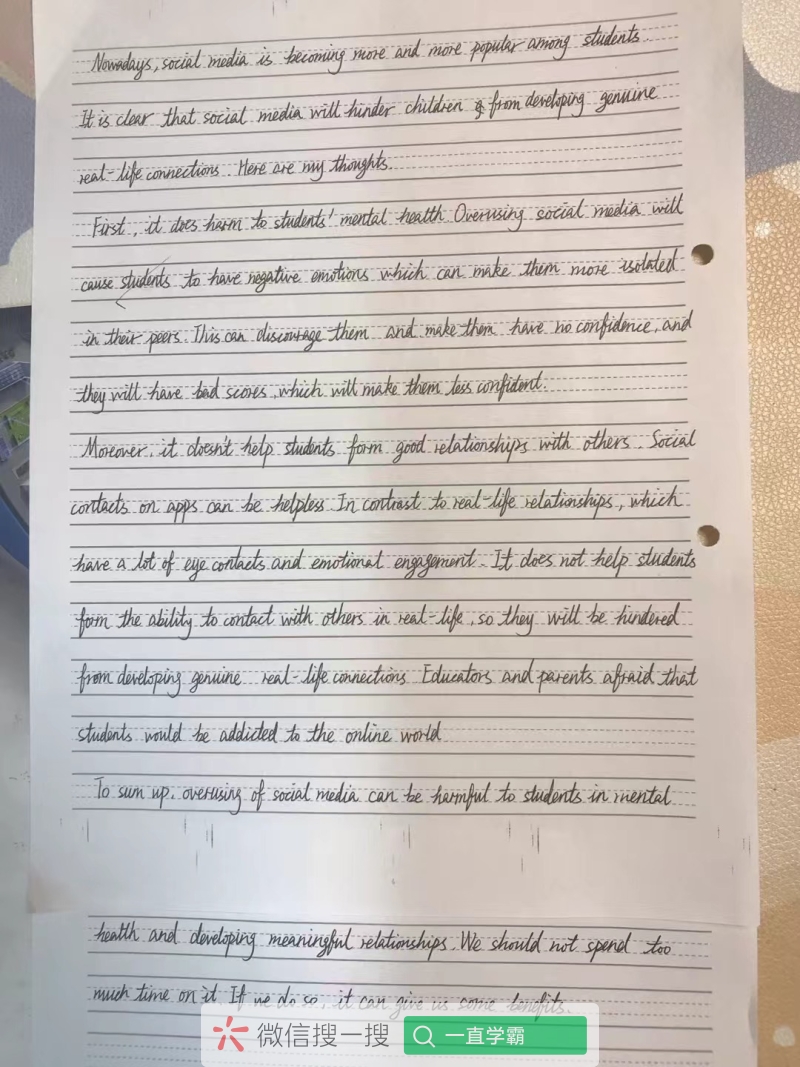 Nowadays, social media is becoming more and more popular among students.
It is clear that social media will hinder children from developing genuine
real-life connections. Here are my thoughts.
First, it does harm to students' mental health. Overusing social media will
cause students to have negative emotions which can make them more isolated
in their peers. This can discourage them and make them have no confidence, and
they will have bad scores, which will make them less confident.
Moreover, it doesn't help students form good relationships with others. Social
contacts on apps can be helpless. In contrast to real-life relationships, which
have a lot of eye contacts and emotional engagement. It does not help students
form the ability to contact with others in real-life, so they will be hindered
from developing genuine real-life connections. Educators and parents afraid that
students would be addicted to the online world
To sum up, overusing of social media can be harmful to students in mental
health and developing meaningful relationships. We should not spend too
much time on it. If we do so, it can give us some benefits.
微信搜一搜 一直学霸